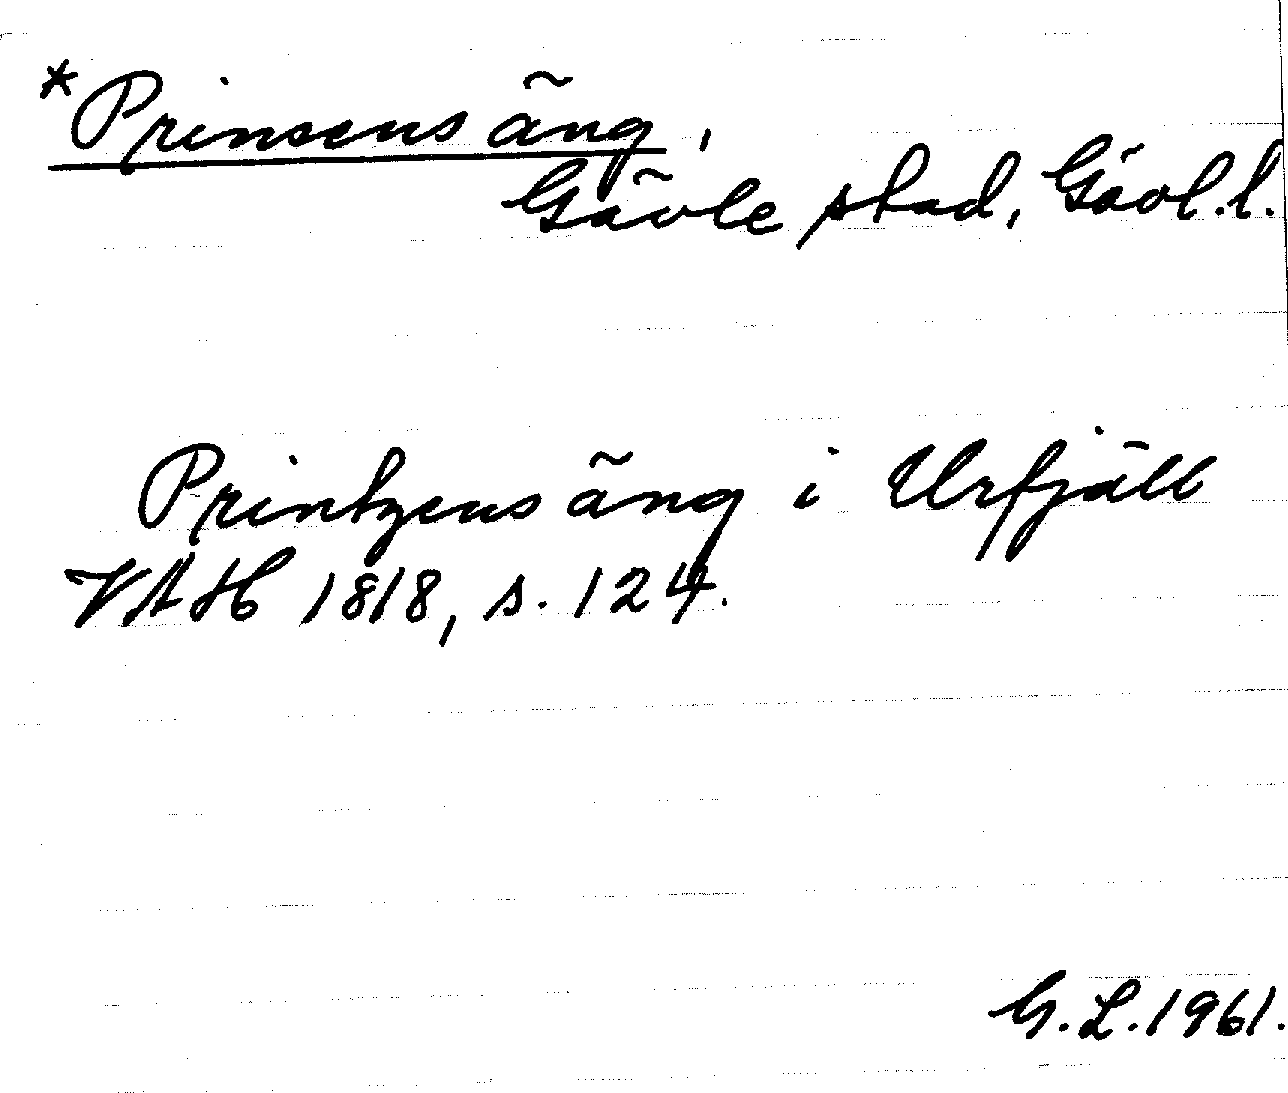 *Prinsens äng,
Gävle stad, Gävl.l.
Printzens äng i Urfjäll
VAH 1818, s. 124.
G.L.1961.